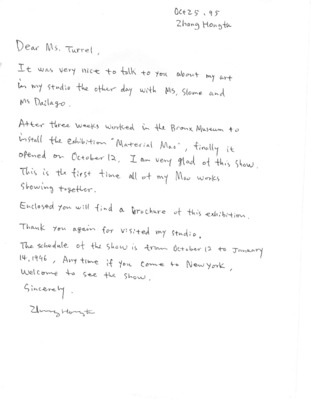 Oct 25, 95
Zhang Hongtu
Dear Ms. Turrel,
It was very nice to talk to you about my art
in my studio the other day with Ms. Sloane and
Ms Dailago.
After three weeks worked in the Bronx Museum to
install the exhibition "Material Mao", finally it
opened on October 12. I am very glad of this show.
This is the first time all of my Mao works
showing together.
Enclosed you will find a brochure of this exhibition.
Thank you again for visited my studio.
The schedule of the show is from October 12 to January
14, 1996, Any time if you come to New York,
Welcome to see the show.
Sincerely.
Zhang Hongtu